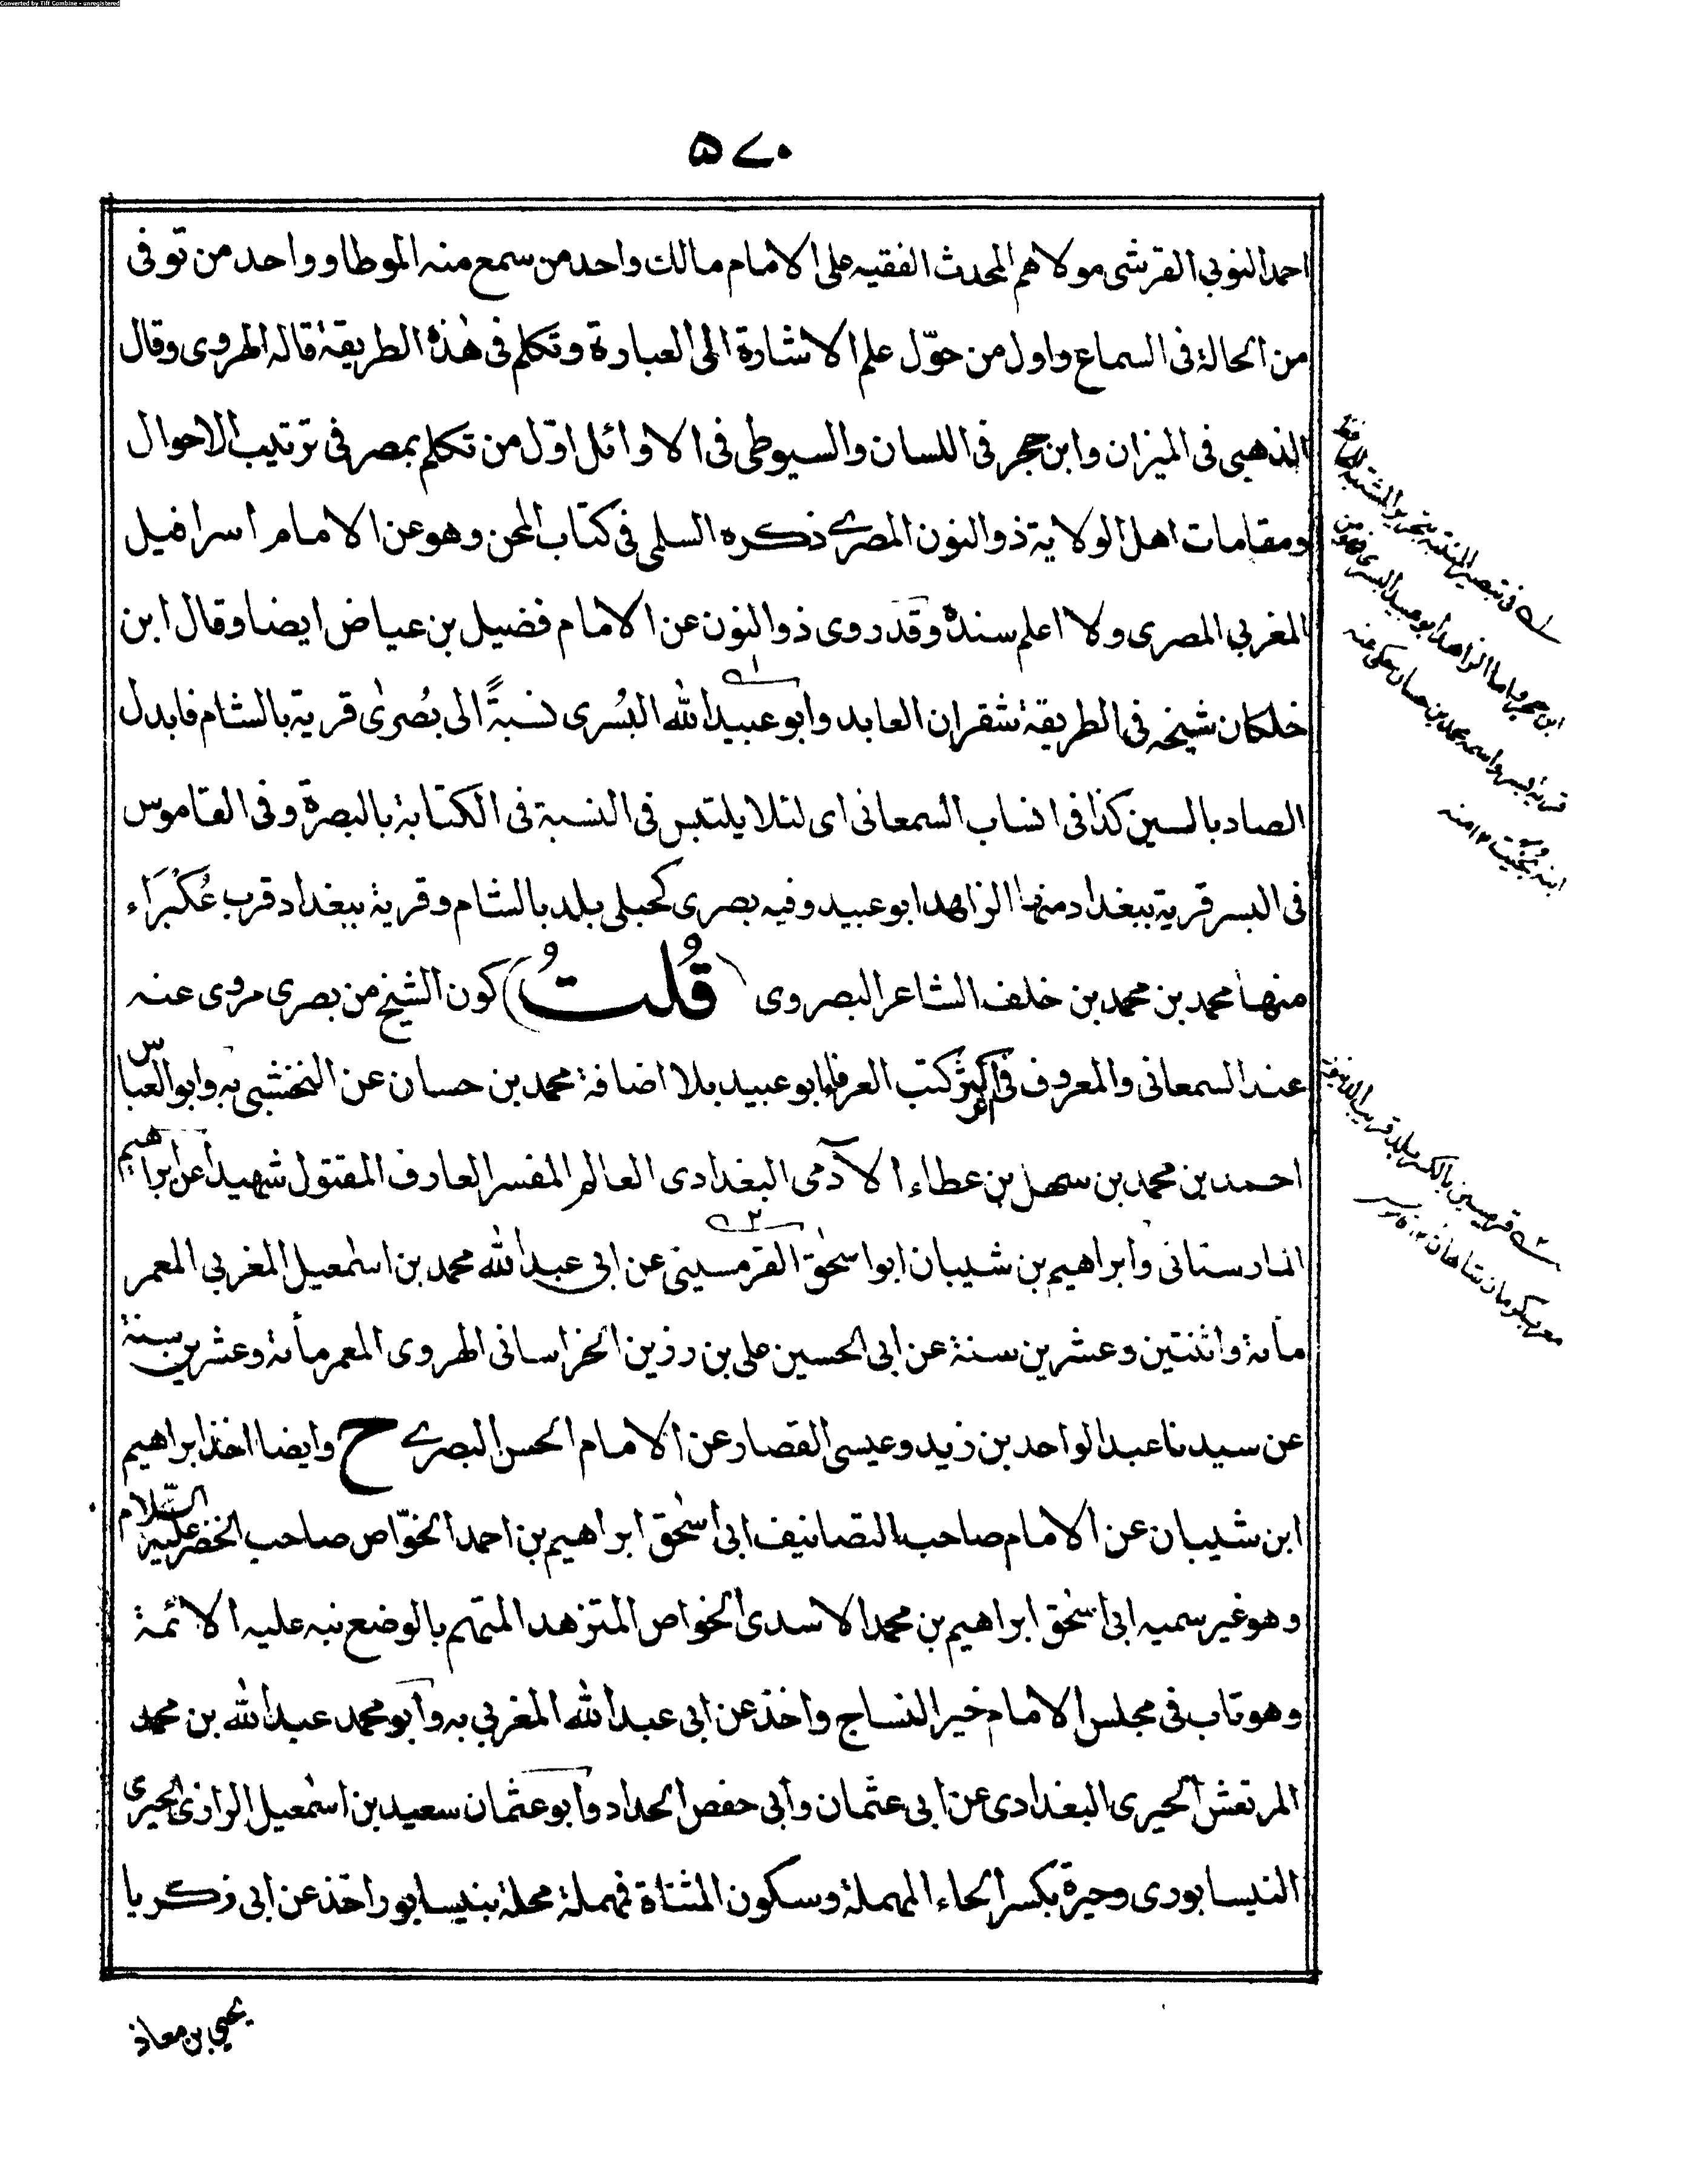 Converted by Tiff Combine - unregistered
۵۷۰
احمد النوبي القرشى مولاهم المحدث الفقيه على الامام مالك واحد من سمع منه الموطا وواحد من توفى
من الحالة فى السماع واول من حوّل علم الاشارة الى العبارة وتكلم فى هٰذه الطريقة قاله الهروى وقال
الذهبى فى الميزان وابن حجر فى اللسان والسيوطى فى الاوائل اوّل من تكلم بمصر فى ترتيب الاحوال
ومقامات اهل الولاية ذو النون المصرے ذكره السلمى فى كتاب المحن وهو عن الامام اسرافيل
المغربي المصرى ولا اعلم سنده وقد روى ذو النون عن الامام فضيل بن عياض ايضا وقال ابن
خلكان شيخه فى الطريقة شقران العابد وابو عبيد الله البُسرى نسبةً الى بُصرىٰ قرية بالشام فابدل
الصاد بالسين كذا فى انساب السمعانى اى لئلا يلتبس فى النسبة فى الكتابة بالبصرة وفى القاموس
فى البسر قرية ببغداد منها الزاهد ابو عبيد وفيه بصرى كحبلى بلد بالشام وقرية ببغداد قرب عُكْبَرَاء
منها محمد بن محمد بن خلف الشاعر البصروى (قُلتُ) كون الشيخ من بصرى مروى عنه
عند السمعانى والمعروف فى اكثر كتب العرفاء ابو عبيد بلا اضافة محمد بن حسان عن النخشبى به وابو العباس
احمد بن محمد بن سهل بن عطاء الآدمى البغدادى العالم المفسر العارف المقتول شهيدا عن ابراهيم
المارستانى وابراهيم بن شيبان ابو اسحٰق القرمسينى عن ابى عبد الله محمد بن اسمٰعيل المغربي المعمر
مأة واثنتين وعشرين سنة عن ابى الحسين على بن رزين الخراسانى الهروى المعمر مأة وعشرين سنة
عن سيدنا عبد الواحد بن زيد وعيسى القصار عن الامام الحسن البصرے ح وايضا اخذ ابراهيم
ابن شيبان عن الامام صاحب التصانيف ابى اسحٰق ابراهيم بن احمد الخوّاص صاحب الخضر عليه السّلام
وهو غير سميه ابى اسحٰق ابراهيم بن محمد الاسدى الخواص المتزهد المتهم بالوضع نبه عليه الائمة
وهو تاب فى مجلس الامام خير النساج واخذ عن ابى عبد الله المغربي به وابو محمد عبد الله بن محمد
المرتعش الحيرى البغدادى عن ابى عثمان وابى حفص الحداد وابو عثمان سعيد بن اسمٰعيل الرازى الحيرى
النيسابورى وحيرة بكسر الحاء المهملة وسكون المثناة فمهملة محلة بنيسابور اخذ عن ابى زكريا
يحيى بن معاذ
۱ فى تبصير المنتبه بتحرير المشتبه للحافظ
ابن حجر واما الزاهد ابو عبيد البسرى فهو من
قرية بسر واسمه محمد بن حسان حكى عنه
ابنه نجيت ۱۲ منه
۲ قرميسين بالكسر بلد قريب الدينور
معرب كرمان شاهان ۱۲ قاموس